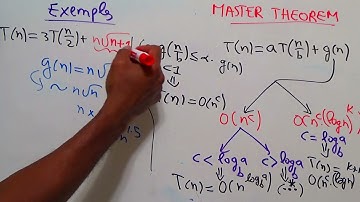 Exemples
T(n)=3T(n/2)+ n√n+1
g(n)= n√
~ n√n
n x
MASTER THEOREM
T(n)=aT(n/b)+g(n)
g(n/b) ≤ α. g(n)
<1
T(n)=O(n^c)
O(n^c)
O(n^c(log n)^k
C<log_b a
C>log_b a
C=log_b a
T(n)=O(n^{log_b a})
(*)
T(n)=
O(n^c(log n)^{k+1}